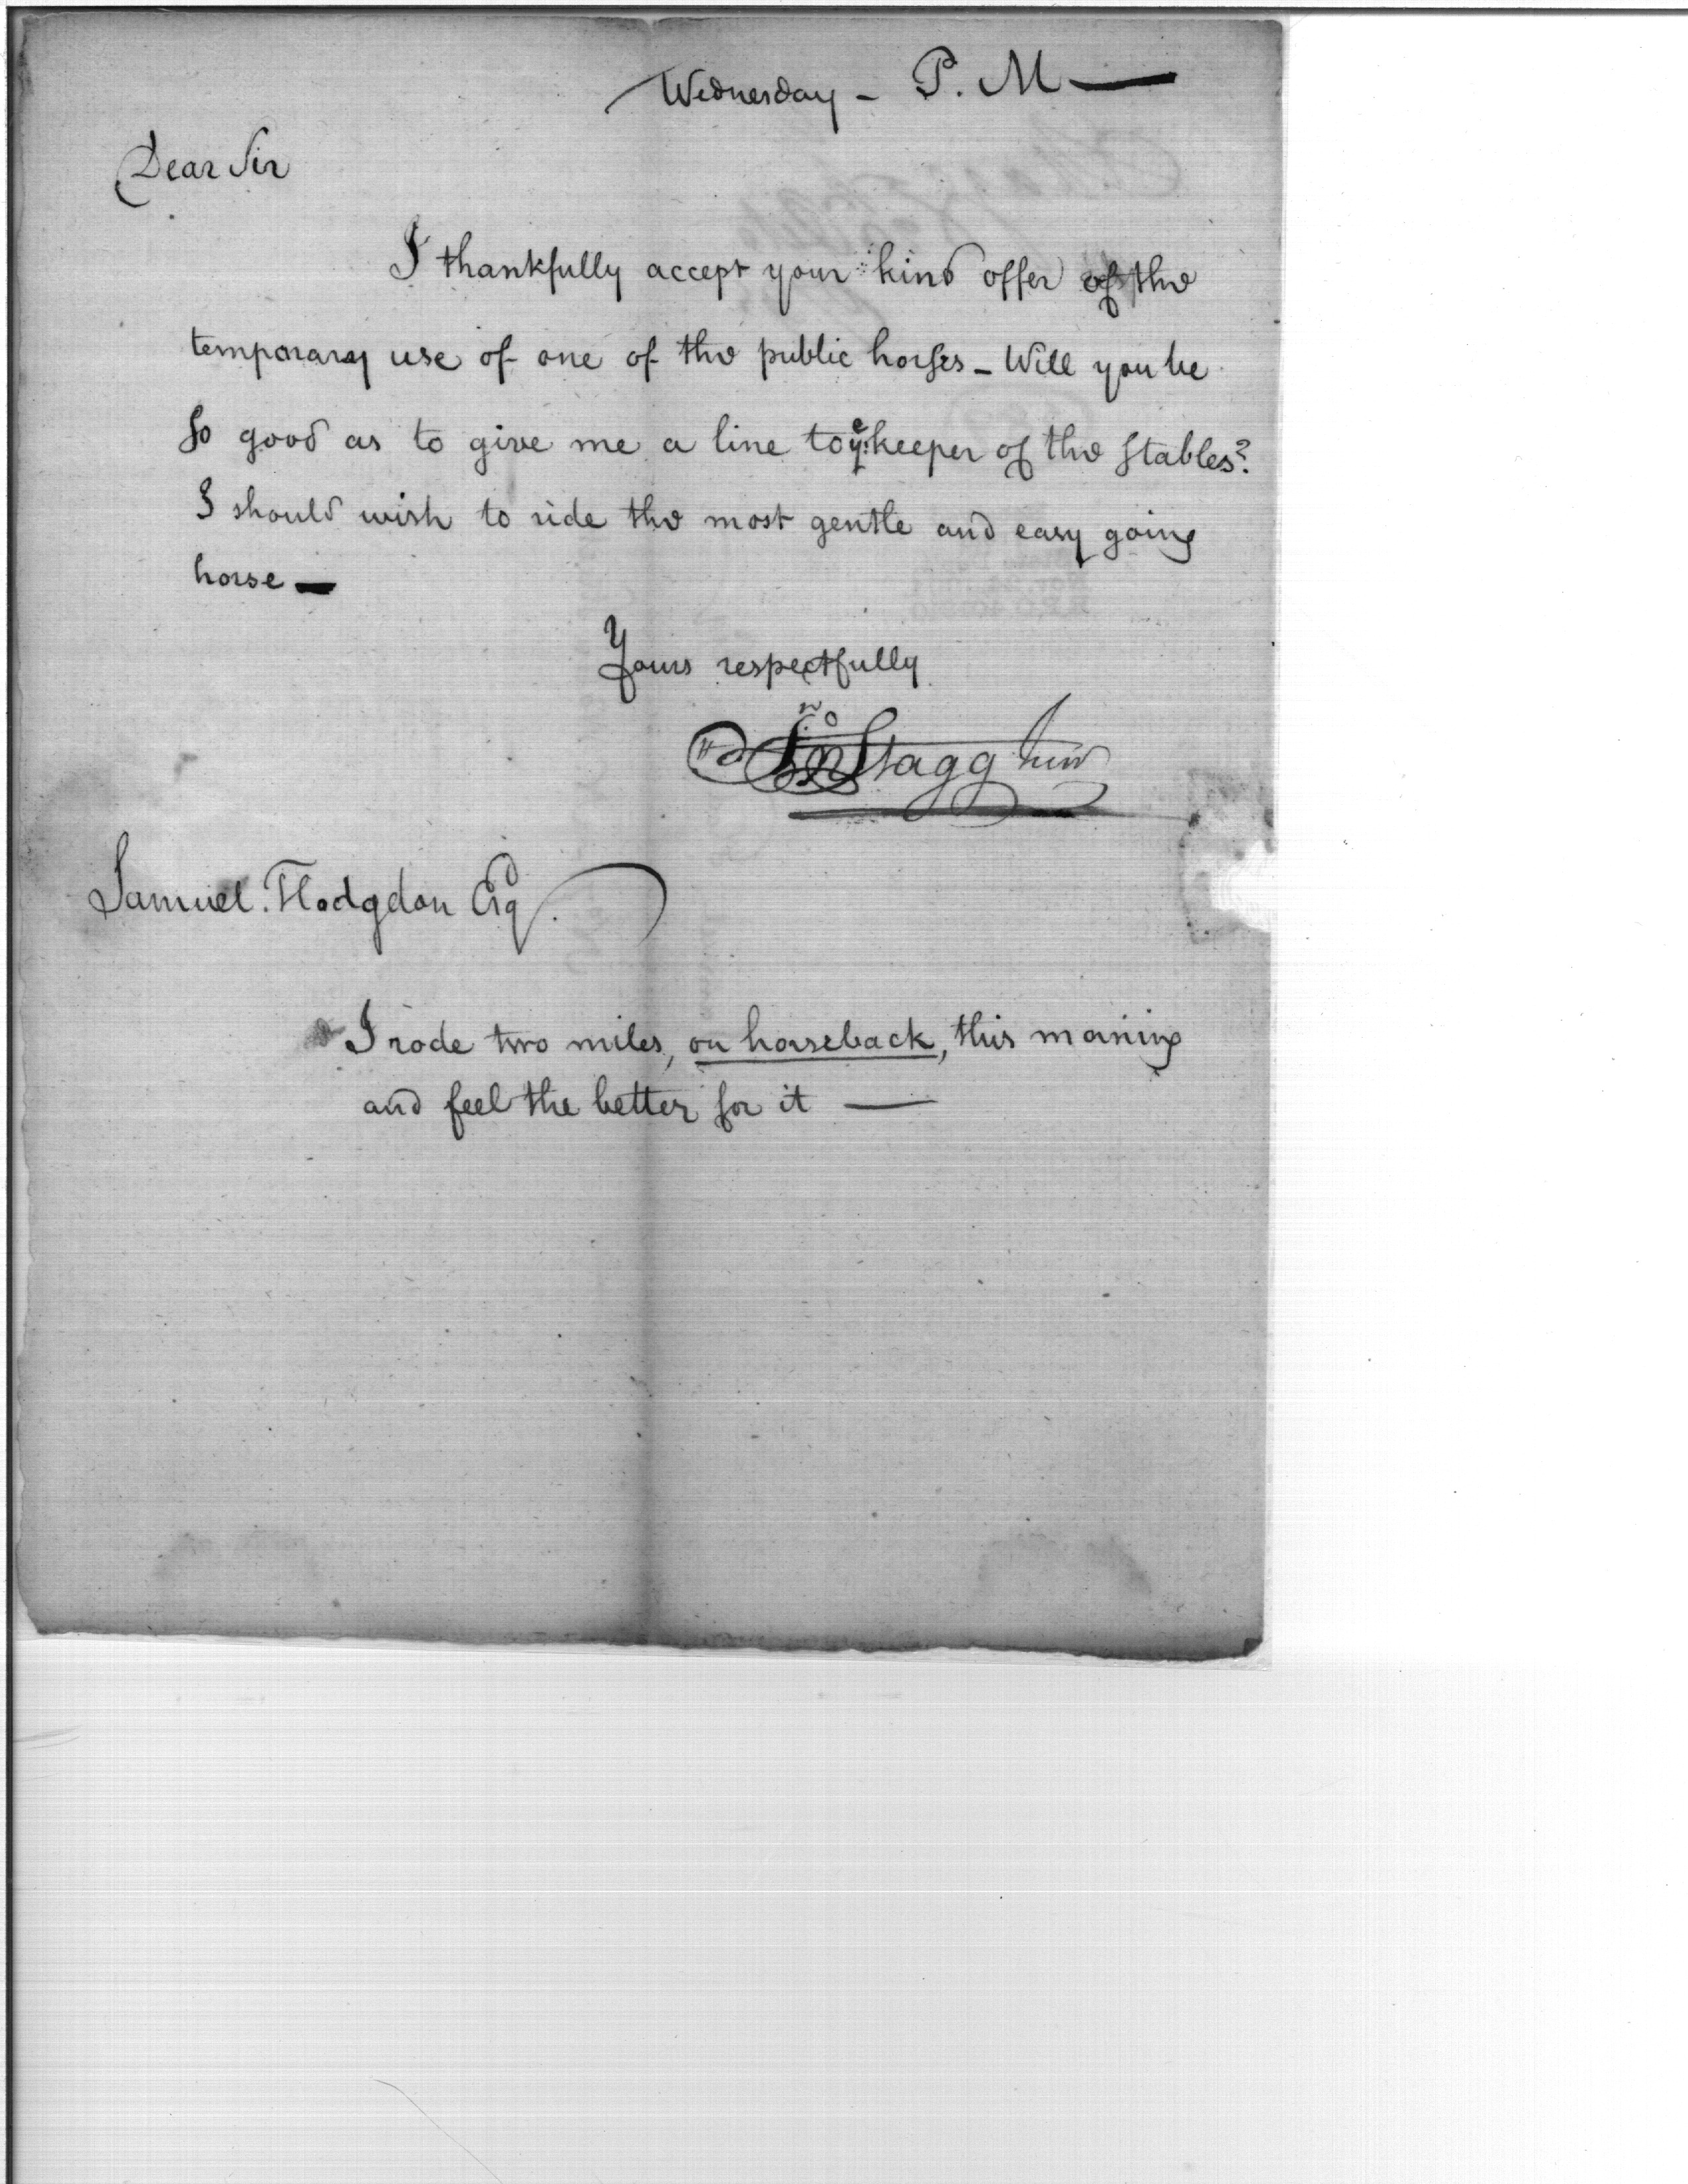 Wednesday - P. M —
Dear Sir
I thankfully accept your kind offer of the
temporary use of one of the public horses - Will you be
so good as to give me a line to ye keeper of the stables?
I should wish to ride the most gentle and easy going
horse —
Yours respectfully
Jno Stagg Junr
Samuel. Hodgdon Esq
I rode two miles, on horseback, this morning
and feel the better for it —